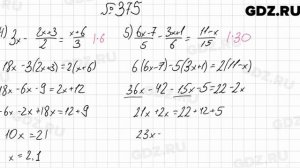 №375
GDZ.RU
4) 3x - (2x+3)/2 = (x+6)/3 | ·6
18x - 3(2x+3) = 2(x+6)
18x - 6x - 9 = 2x + 12
-6x - 2x + 18x = 12 + 9
10x = 21
x = 2,1
5) (6x-7)/5 - (3x+1)/6 = (11-x)/15 | ·30
6(6x-7) - 5(3x+1) = 2(11-x)
36x - 42 - 15x - 5 = 22 - 2x
21x + 2x = 22 + 42 + 5
23x -
GDZ.RU